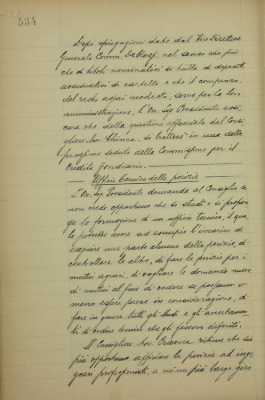 334
Dopo spiegazioni date dal Vice Direttore
Generale Comm. De Rossi, nel senso che più
che di titoli nominativi si tratta di depositi
amministrativi di cartelle e che il compenso,
del resto assai modesto, serve per la loro
amministrazione, l'On. Sig. Presidente assi-
cura che della questione affacciata dal Consi-
gliere Avv. si tratterà in una delle
prossime sedute della Commissione per il
Credito Fondiario.
Ufficio tecnico delle perizie
L'On. Sig. Presidente domanda al Consiglio se
non crede opportuno che si studi e si propon-
ga la formazione di un ufficio tecnico, il qua-
le potrebbe avere ad esempio l'incarico di
eseguire una parte almeno delle perizie, di
controllare le altre, di fare le perizie per i
mutui agrari, di vagliare le domande nuove
di mutui al fine di vedere se possano o
meno essere prese in considerazione, di
fare in genere tutti gli studi e gli accertamen-
ti di ordine tecnico che gli fossero deferiti.
Il Consigliere Avv. ritiene che sia
più opportuno affidare le perizie ad inge-
gneri professionisti, a mi un più largo giro